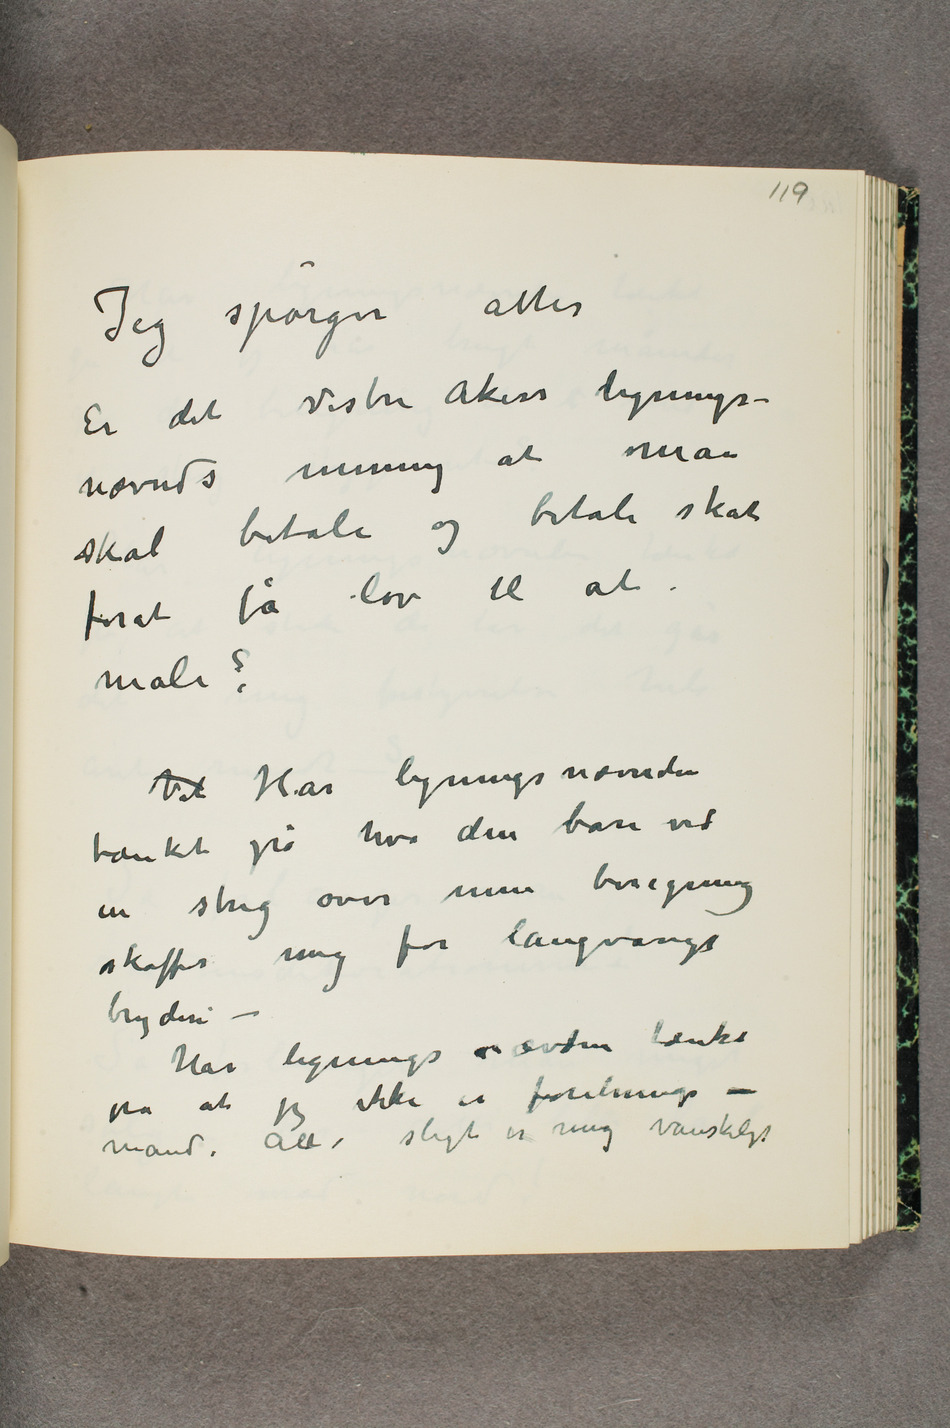 119
Jeg spörger atter
Er det Vestre Akers lignings-
nævnds mening at man
skal betale og betale skat
forat få lov til at
male?
Vil Har ligningsnævnden
tænkt på hva den bare ved
en streg over min beregning
skaffer mig for langvarigt
bryderi –
Har ligningsnævden tænkt
pa at jeg ikke er foretnings –
mand. Alt sligt er mig vanskeligt